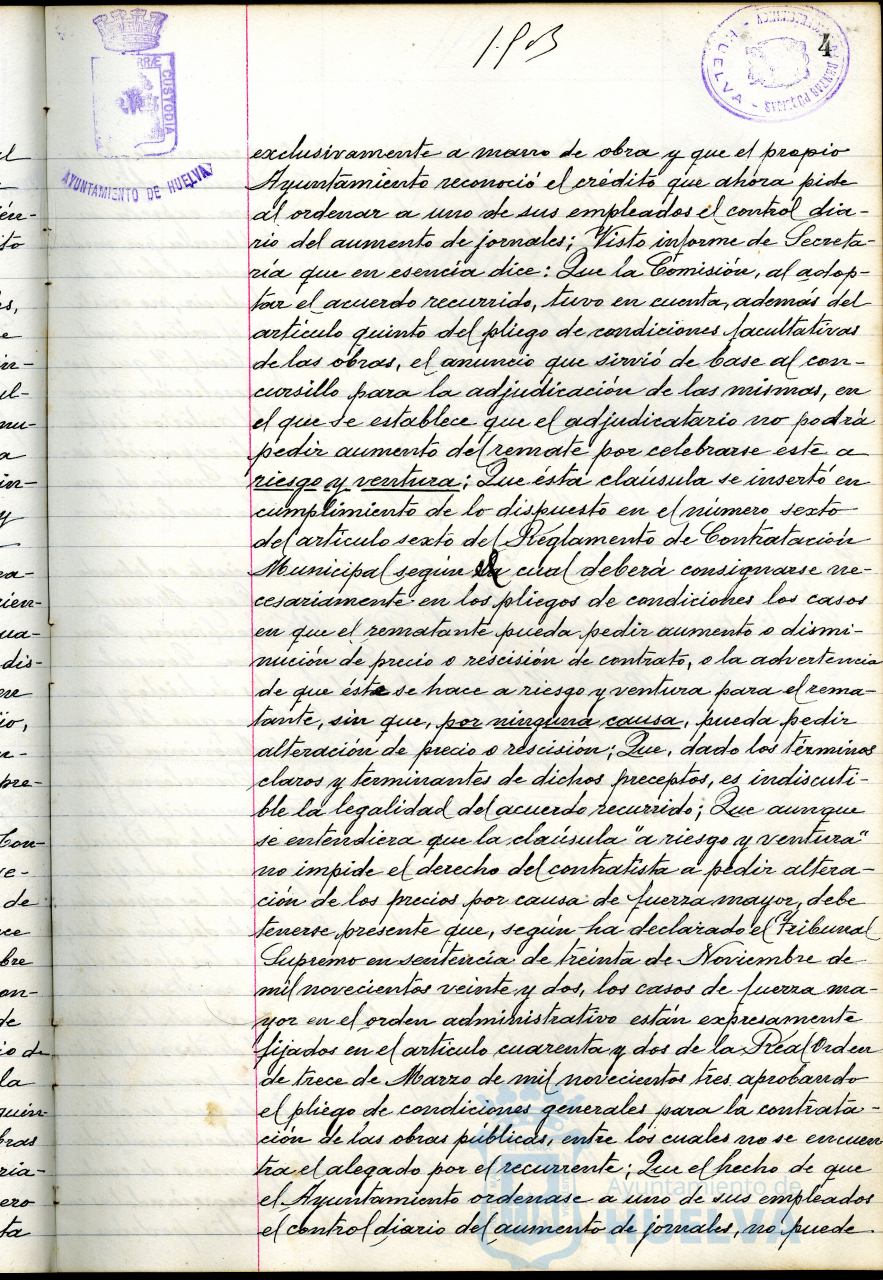 4
PORTUS MARIS ET TERRÆ CUSTODIA
AYUNTAMIENTO DE HUELVA
HUELVA
exclusivamente a mano de obra y que el propio
Ayuntamiento reconoció el crédito que ahora pide
al ordenar a uno de sus empleados el control dia-
rio del aumento de jornales; Visto informe de Secreta-
ría que en esencia dice: Que la Comisión, al adop-
tar el acuerdo recurrido, tuvo en cuenta, además del
artículo quinto del pliego de condiciones facultativas
de las obras, el anuncio que sirvió de base al con-
cursillo para la adjudicación de las mismas, en
el que se establece que el adjudicatario no podrá
pedir aumento del remate por celebrarse este a
riesgo y ventura; Que ésta claúsula se insertó en
cumplimiento de lo dispuesto en el número sexto
del artículo sexto del Reglamento de Contratación
Municipal según el cual deberá consignarse ne-
cesariamente en los pliegos de condiciones los casos
en que el rematante pueda pedir aumento o dismi-
nución de precio o rescisión de contrato, o la advertencia
de que éste se hace a riesgo y ventura para el rema-
tante, sin que, por ninguna causa, pueda pedir
alteración de precio o rescisión; Que, dado los términos
claros y terminantes de dichos preceptos, es indiscuti-
ble la legalidad del acuerdo recurrido; Que aunque
se entendiera que la claúsula "a riesgo y ventura"
no impide el derecho del contratista a pedir altera-
ción de los precios por causa de fuerza mayor, debe
tenerse presente que, según ha declarado el Tribunal
Supremo en sentencia de treinta de Noviembre de
mil novecientos veinte y dos, los casos de fuerza ma-
yor en el orden administrativo están expresamente
fijados en el artículo cuarenta y dos de la Real Orden
de trece de Marzo de mil novecientos tres aprobando
el pliego de condiciones generales para la contrata-
ción de las obras públicas, entre los cuales no se encuen
tra el alegado por el recurrente; Que el hecho de que
el Ayuntamiento ordenase a uno de sus empleados
el control diario del aumento de jornales, no puede
Ayuntamiento de
HUELVA